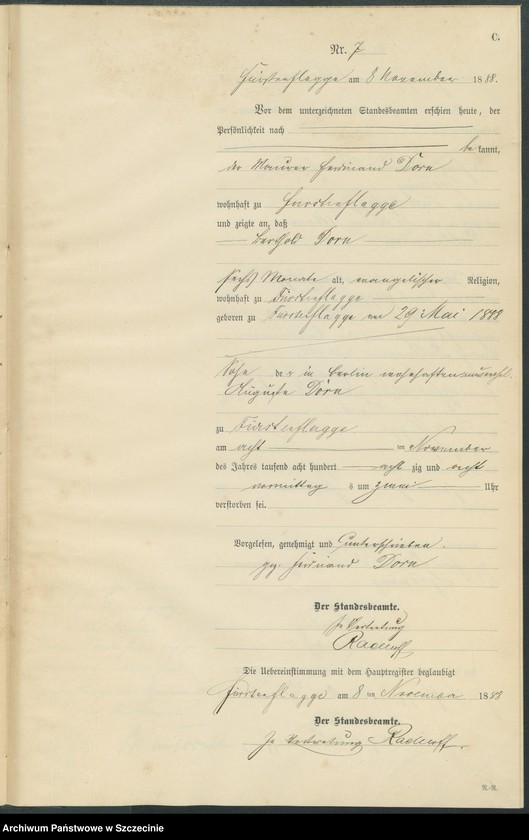 C.
Nr. 7
Fürstenflagge am 8 November 1888.
Vor dem unterzeichneten Standesbeamten erschien heute, der
Persönlichkeit nach
be kannt,
der Maurer Ferdinand Dorn
wohnhaft zu Fürstenflagge
und zeigte an, daß
Berthold Dorn
sechs Monate alt, evangelischer Religion,
wohnhaft zu Fürstenflagge
geboren zu Fürstenflagge am 29 Mai 1888
Sohn der in Berlin wohnhaften unverehel.
Auguste Dorn
zu Fürstenflagge
am acht ten November
des Jahres tausend acht hundert acht zig und acht
vormittag s um zwei Uhr
verstorben sei.
Vorgelesen, genehmigt und unterschrieben.
gez. Ferdinand Dorn
Der Standesbeamte.
In Vertretung
Die Uebereinstimmung mit dem Hauptregister beglaubigt
Fürstenflagge am 8 ten November 1888
Der Standesbeamte.
In Vertretung
R.-R.
Archiwum Państwowe w Szczecinie